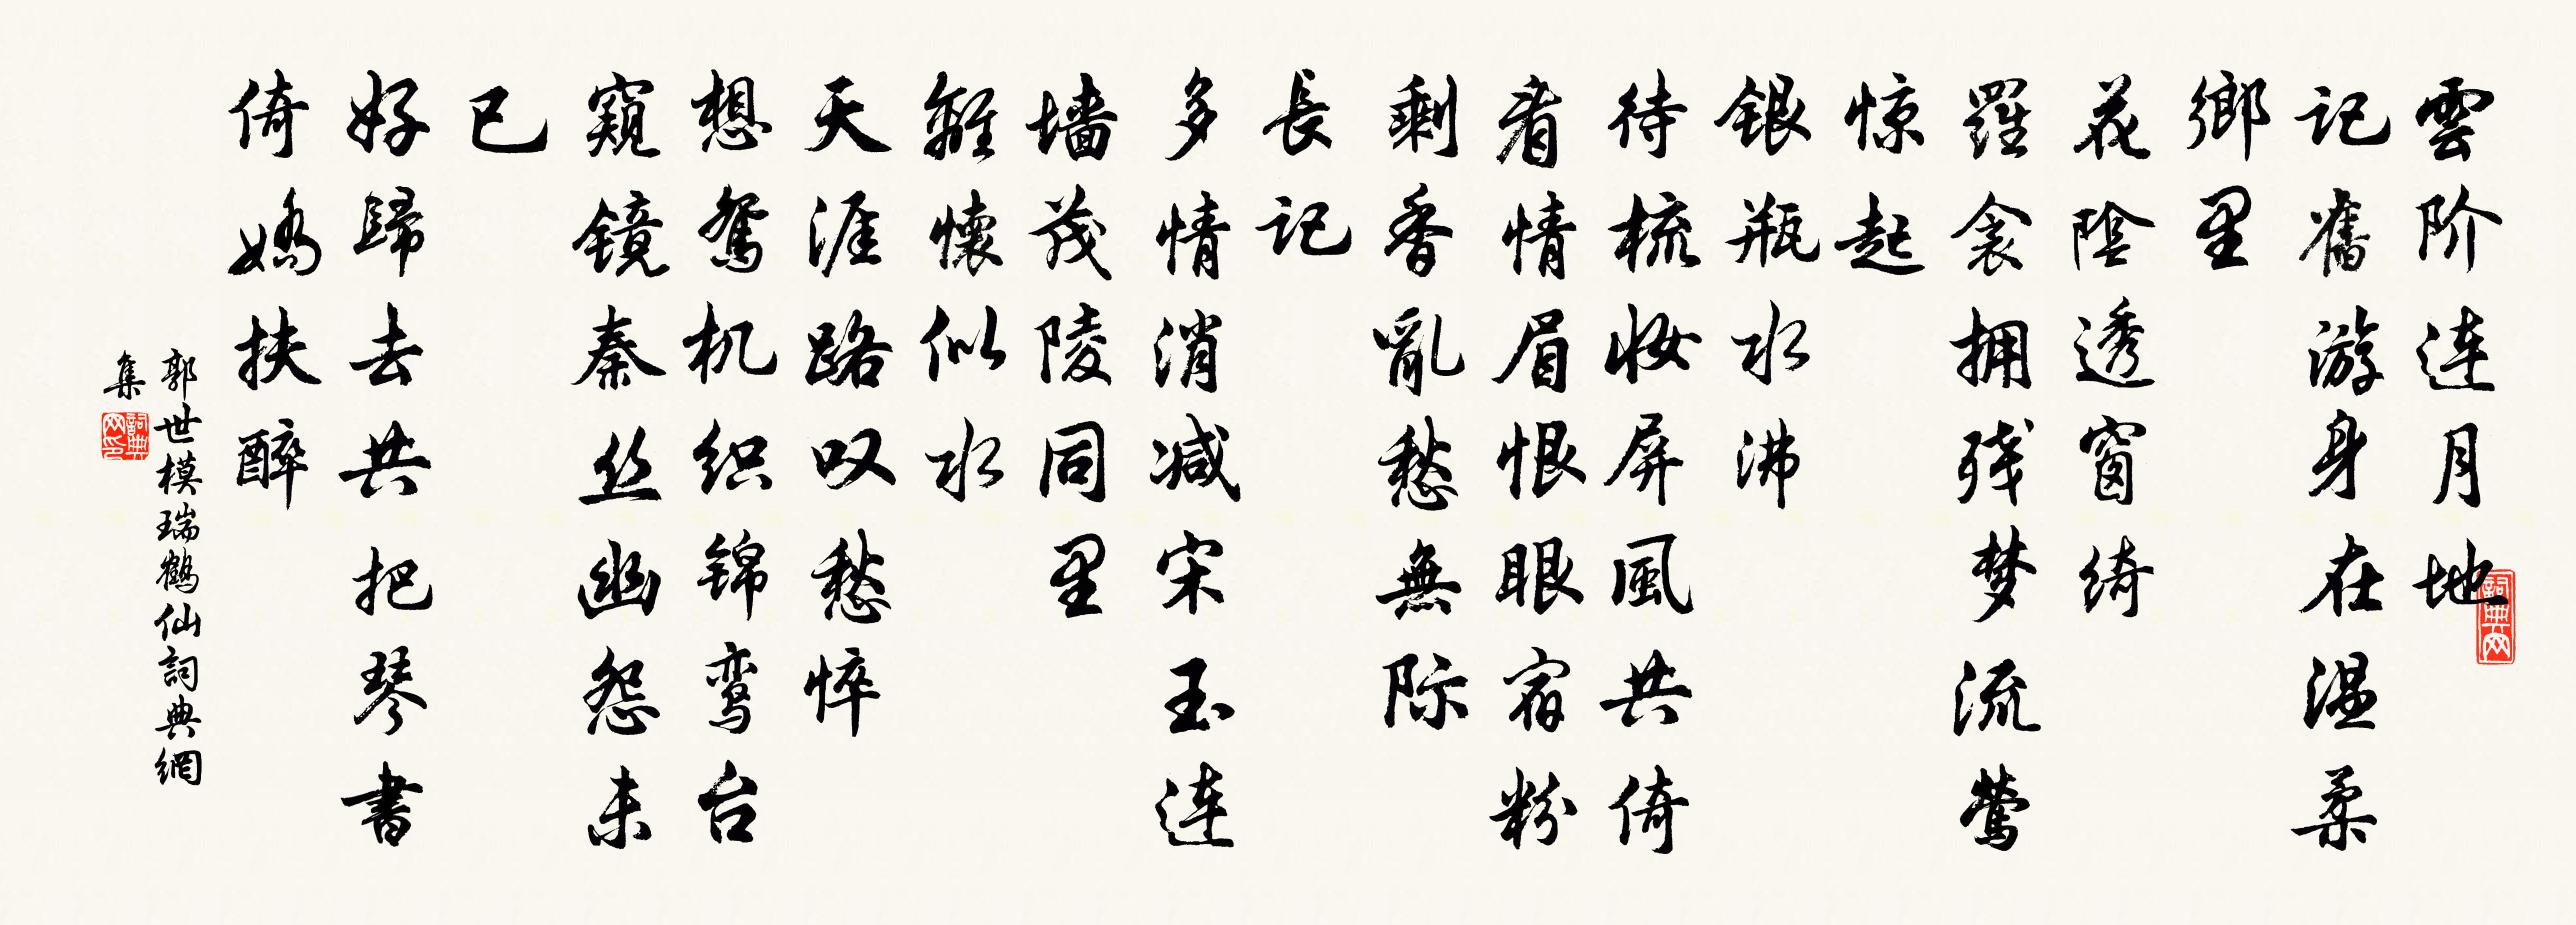 雲阶连月地
记舊游身在温柔
鄉里
花陰透窗绮
羅衾拥残梦流莺
惊起
银瓶水沸
待梳妆屏風共倚
看情眉恨眼宿粉
剩香亂愁無际
長记
多情消减宋玉连
墙茂陵同里
離懷似水
天涯路叹愁悴
想鸳机织锦鸾台
窥镜秦丝幽怨未
已
好歸去共把琴书
倚嬌扶醉
郭世模瑞鹤仙詞典網
集
詞典网
詞典网印